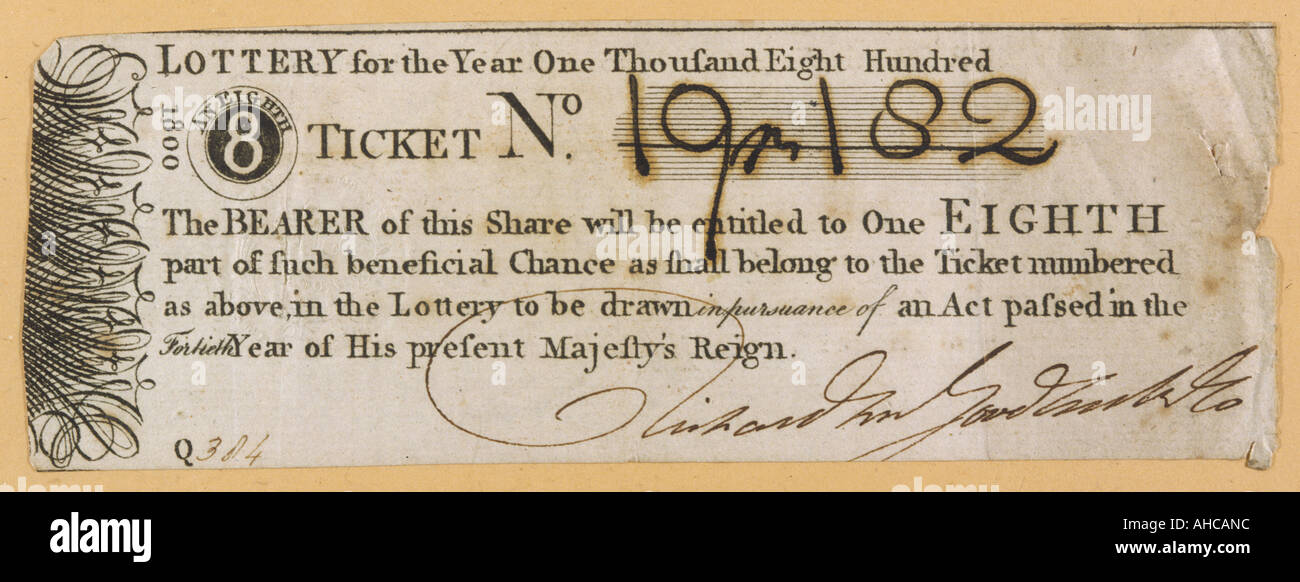 LOTTERY for the Year One Thouſand Eight Hundred
1800
AN EIGHTH
8
TICKET Nº. 19m182
The BEARER of this Share will be entitled to One EIGHTH
part of ſuch beneficial Chance as ſhall belong to the Ticket numbered
as above, in the Lottery to be drawn in pursuance of an Act paſsed in the
Fortieth Year of His preſent Majeſty's Reign.
Richard Wm Goodluck & Co
Q 384
alamy stock photo
alamy
Image ID: AHCANC
www.alamy.com